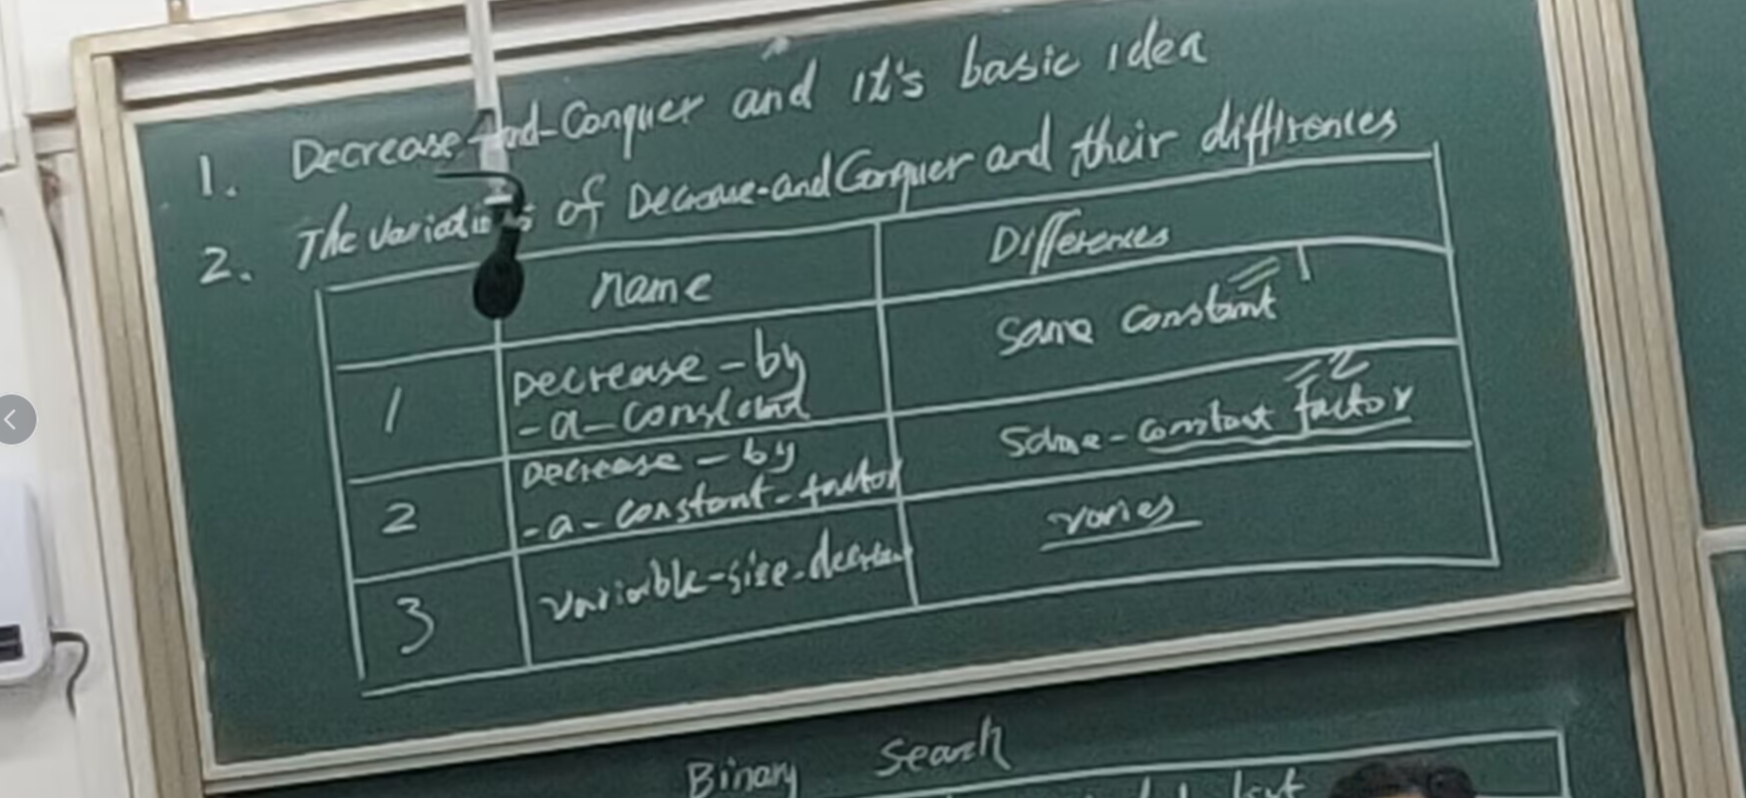 1. Decrease-And-Conquer and it's basic idea
2. The variations of Decrease-and Conquer and their differences
name Differences
1 Decrease-by
-a-constant
Same constant = 1
2 Decrease-by
-a-constant-factor
Same-constant factor = 2
3 Variable-size-decrease varies
Binary Search
last